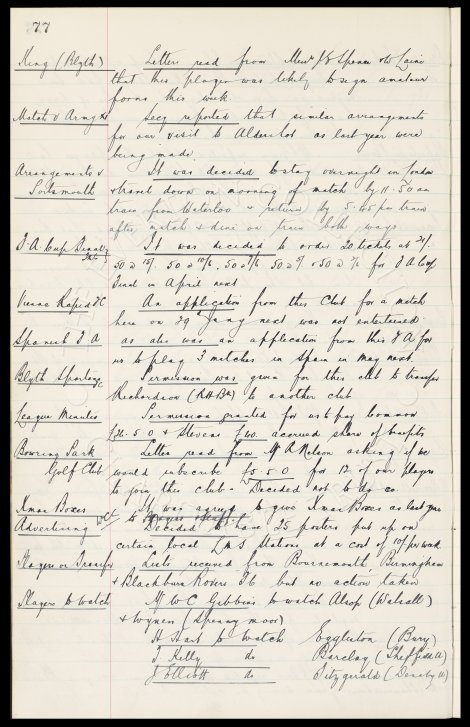 77
King (Blyth) Letters read from Messrs J H Spence & W Laine
that this player was likely to sign amateur
forms this week
Match v Army Secy reported that similar arrangements
for our visit to Aldershot as last year were
being made.
Arrangements v It was decided to stay overnight in London
Portsmouth & travel down on morning of match by 11.50 am
train from Waterloo & return by 5.45 pm train
after match & dine on train both ways
F.A. Cup Final It was decided to order 20 tickets at
50 @ 15/- 50 @ 10/6 50 @ 50 @ 5/- for F A Cup
Final in April next
Vienna Rapid F C An application from this Club for a match
here on 29th Jany next was not entertained
Spanish F A as also was an application from this F A for
us to play 3 matches in Spain in May next.
Blyth Spartans Permission was given for this club to transfer
Richardson (R H Bk) to another club
League Minutes Permission granted for us to pay Common
£ & Stevens accrued share of benefits
Bowring Park Letter read from Mr A Nelson asking if we
Golf Club would subscribe £5 5 0 for 12 of our players
to join this club - Decided not to do so.
Xmas Boxes It was agreed to give Xmas Boxes as last year
to Players & Staff.
Advertising Decided to have 25 posters put up on
certain local L M S Stations at a cost of 10/- per week
Players on Transfer Lists received from Bournemouth, Birmingham
& Blackburn Rovers F C but no action taken
Players to Watch Mr W C Gibbins to watch Alsop (Walsall)
& Wyness (Spennymoor)
A Hart to watch Eggleston (Bury)
J Kelly do Barclay (Sheffield U)
J Elliott do Fitzgerald (Denaby U)